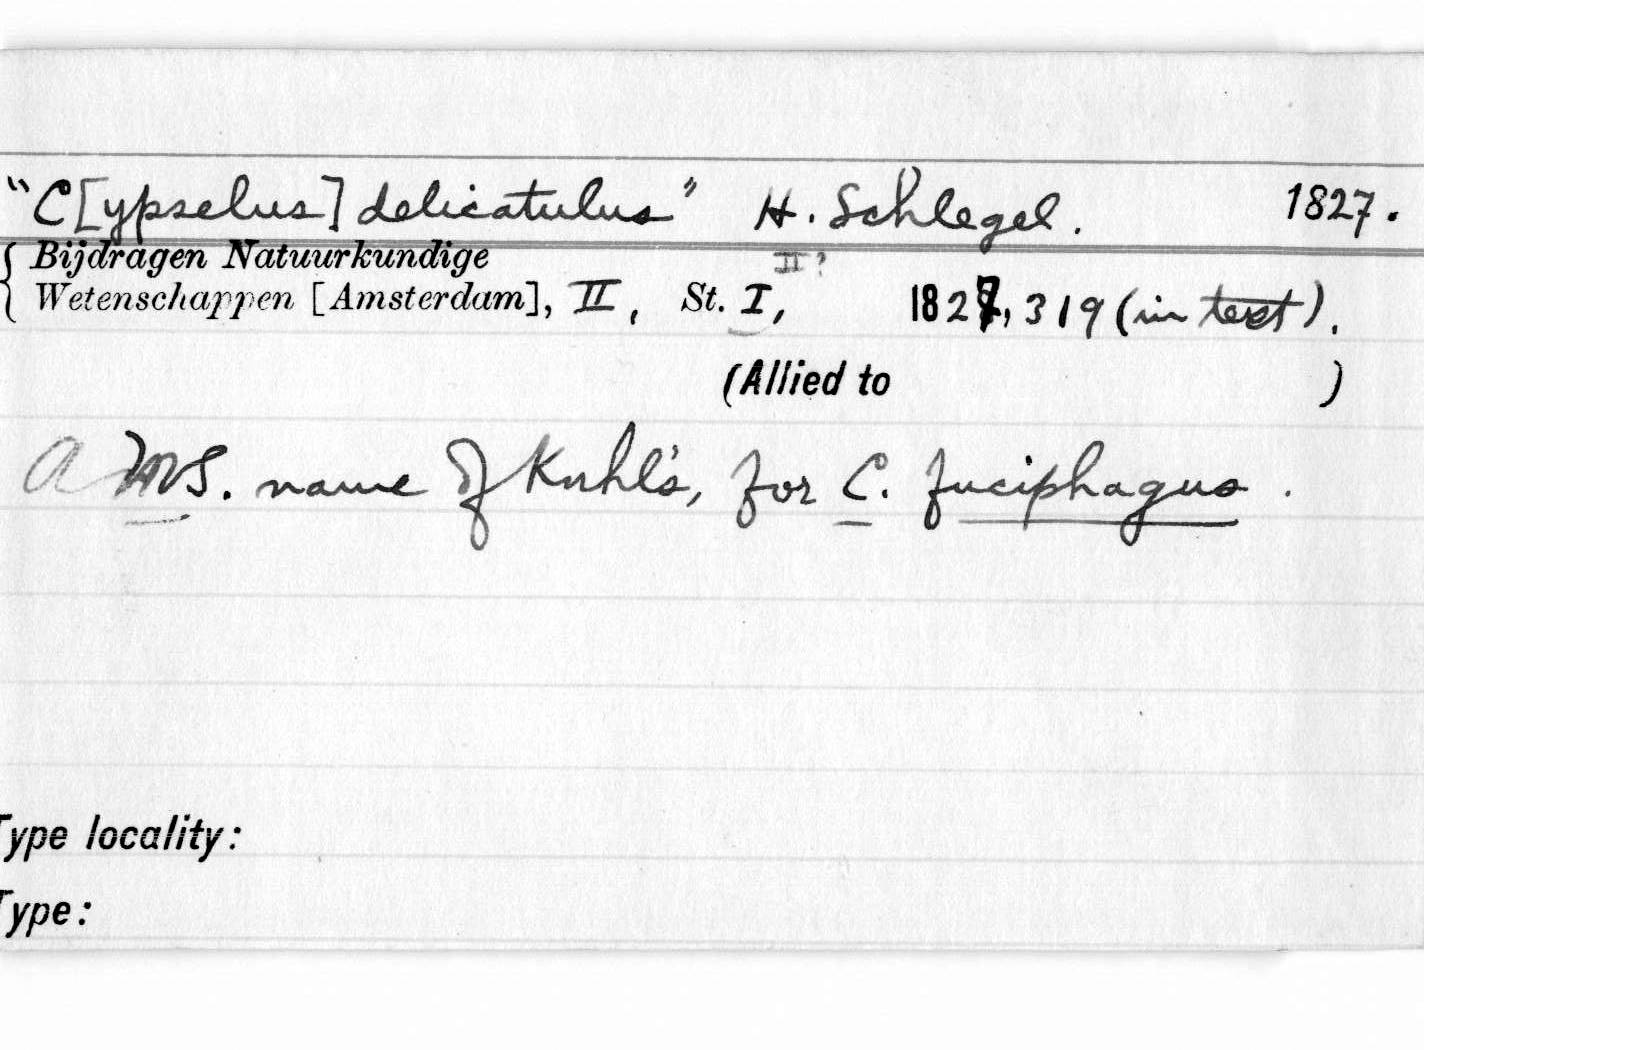 "C[ypselus] delicatulus" H. Schlegel. 1827.
Bijdragen Natuurkundige
II?
Wetenschappen [Amsterdam], II, St. I, 1827, 319 (in text).
(Allied to )
A MS. name of Kuhl's, for C. fuciphagus.
Type locality:
Type: